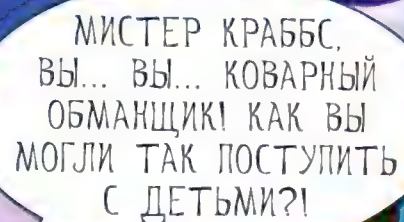 МИСТЕР КРАББС,
ВЫ... ВЫ... КОВАРНЫЙ
ОБМАНЩИК! КАК ВЫ
МОГЛИ ТАК ПОСТУПИТЬ
С ДЕТЬМИ?!